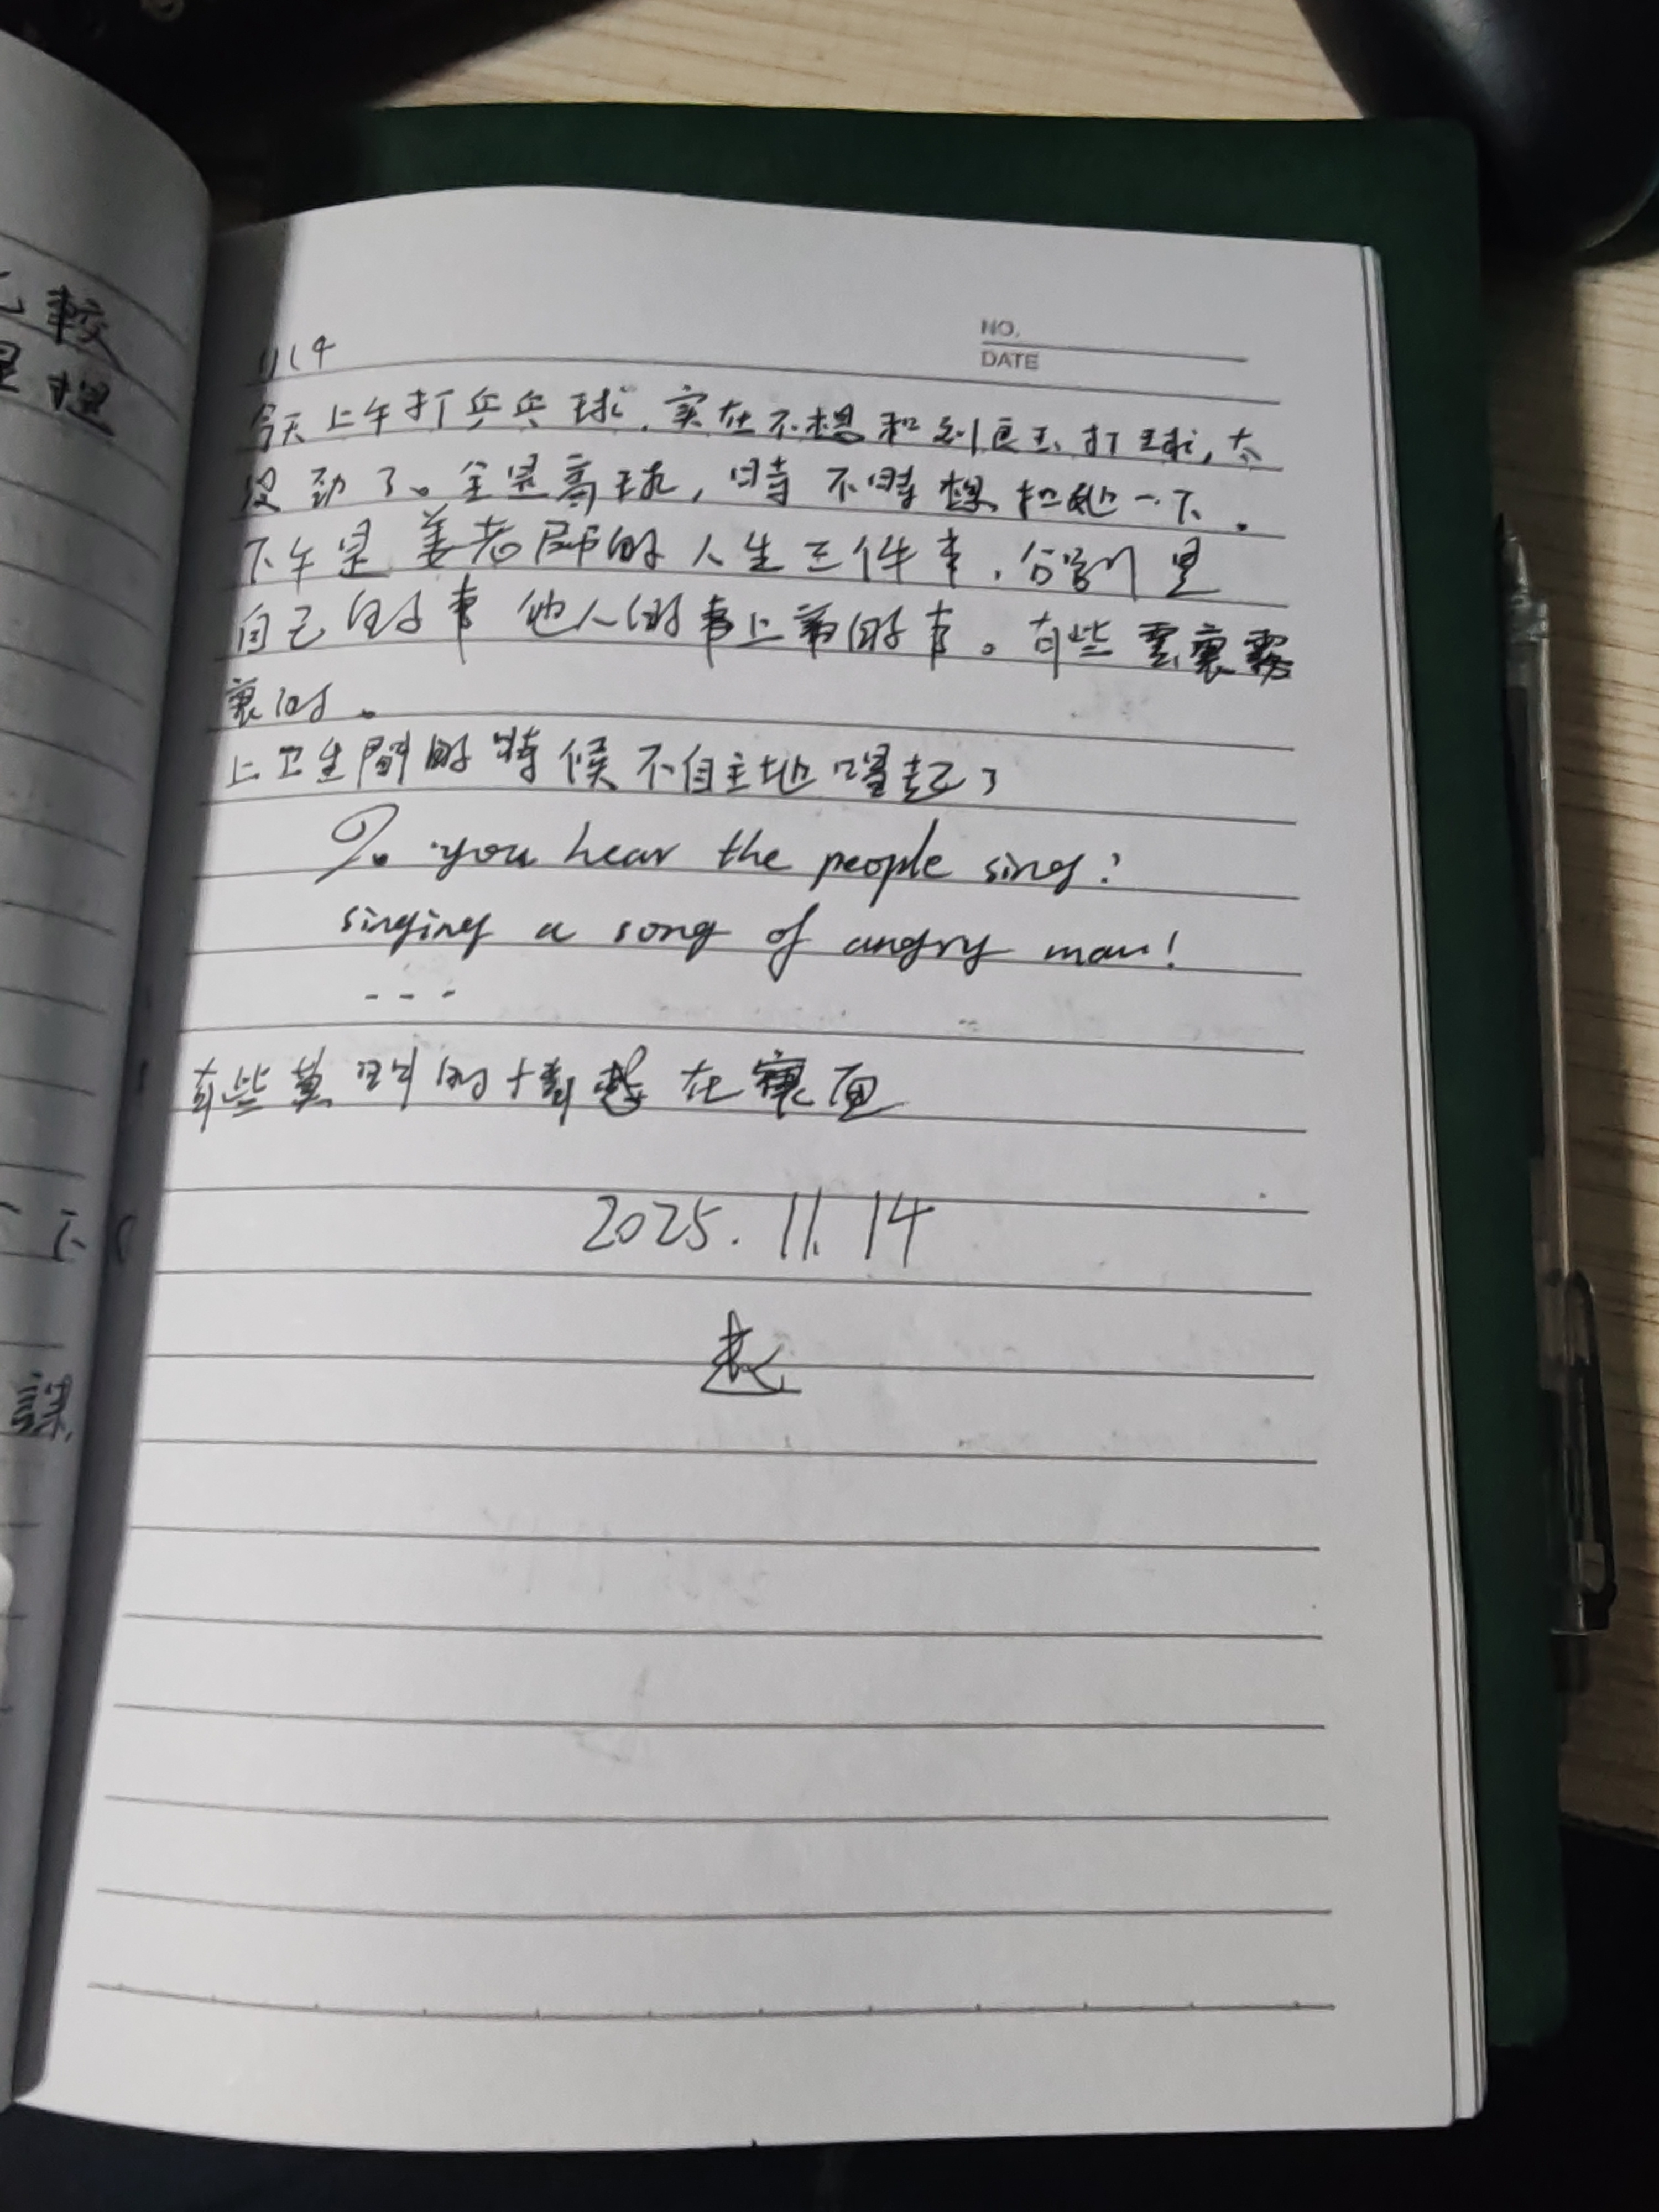 比較
是想
1114
NO.
DATE
今天上午打乒乓球.实在不想和刘良玉打球,太
没劲了。全是高球,時不時想扣她一下。
下午是姜老師的人生三件事,分别是
自己的事 他人的事上帝的事。有些雲裏霧
裏的。
上卫生間的時候不自主地唱起了
Do you hear the people sing?
singing a song of angry man!
---
有些莫明的情愫在裏面
2025.11.14
赵